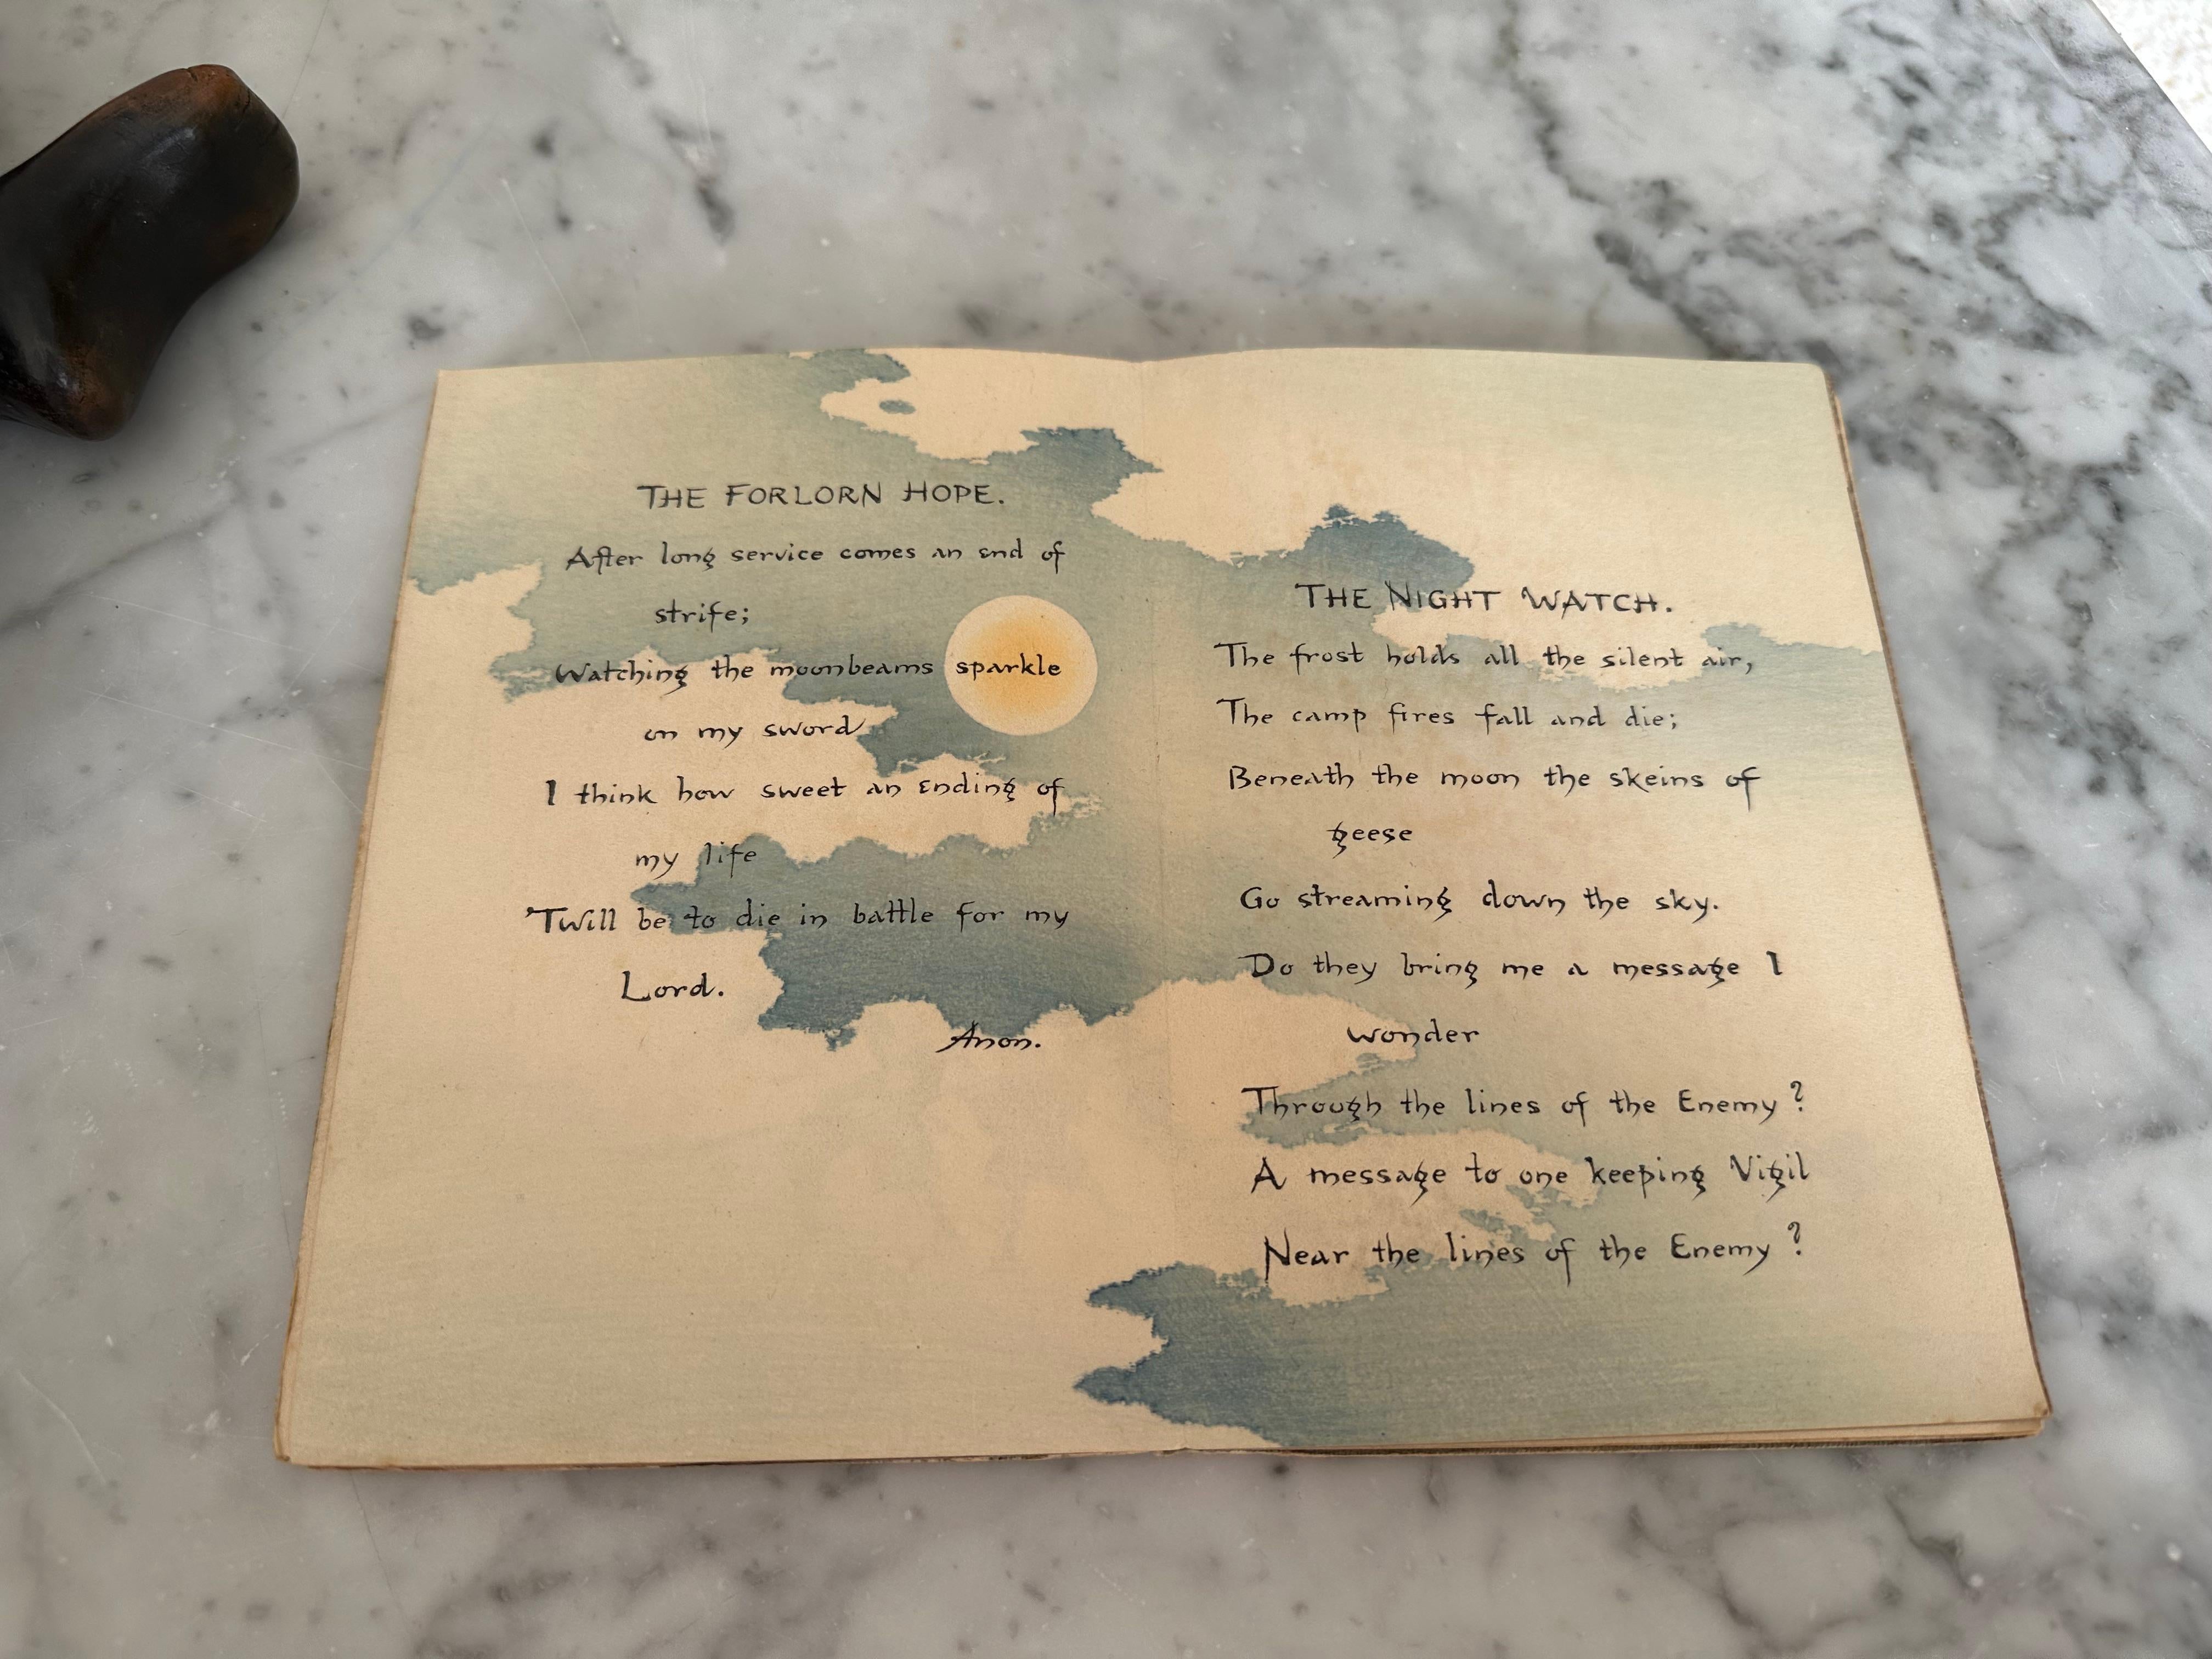 THE FORLORN HOPE.
After long service comes an end of
strife;
Watching the moonbeams sparkle
on my sword
I think how sweet an ending of
my life
'Twill be to die in battle for my
Lord.
Anon.
THE NIGHT WATCH.
The frost holds all the silent air,
The camp fires fall and die;
Beneath the moon the skeins of
geese
Go streaming down the sky.
Do they bring me a message I
wonder
Through the lines of the Enemy?
A message to one keeping Vigil
Near the lines of the Enemy?